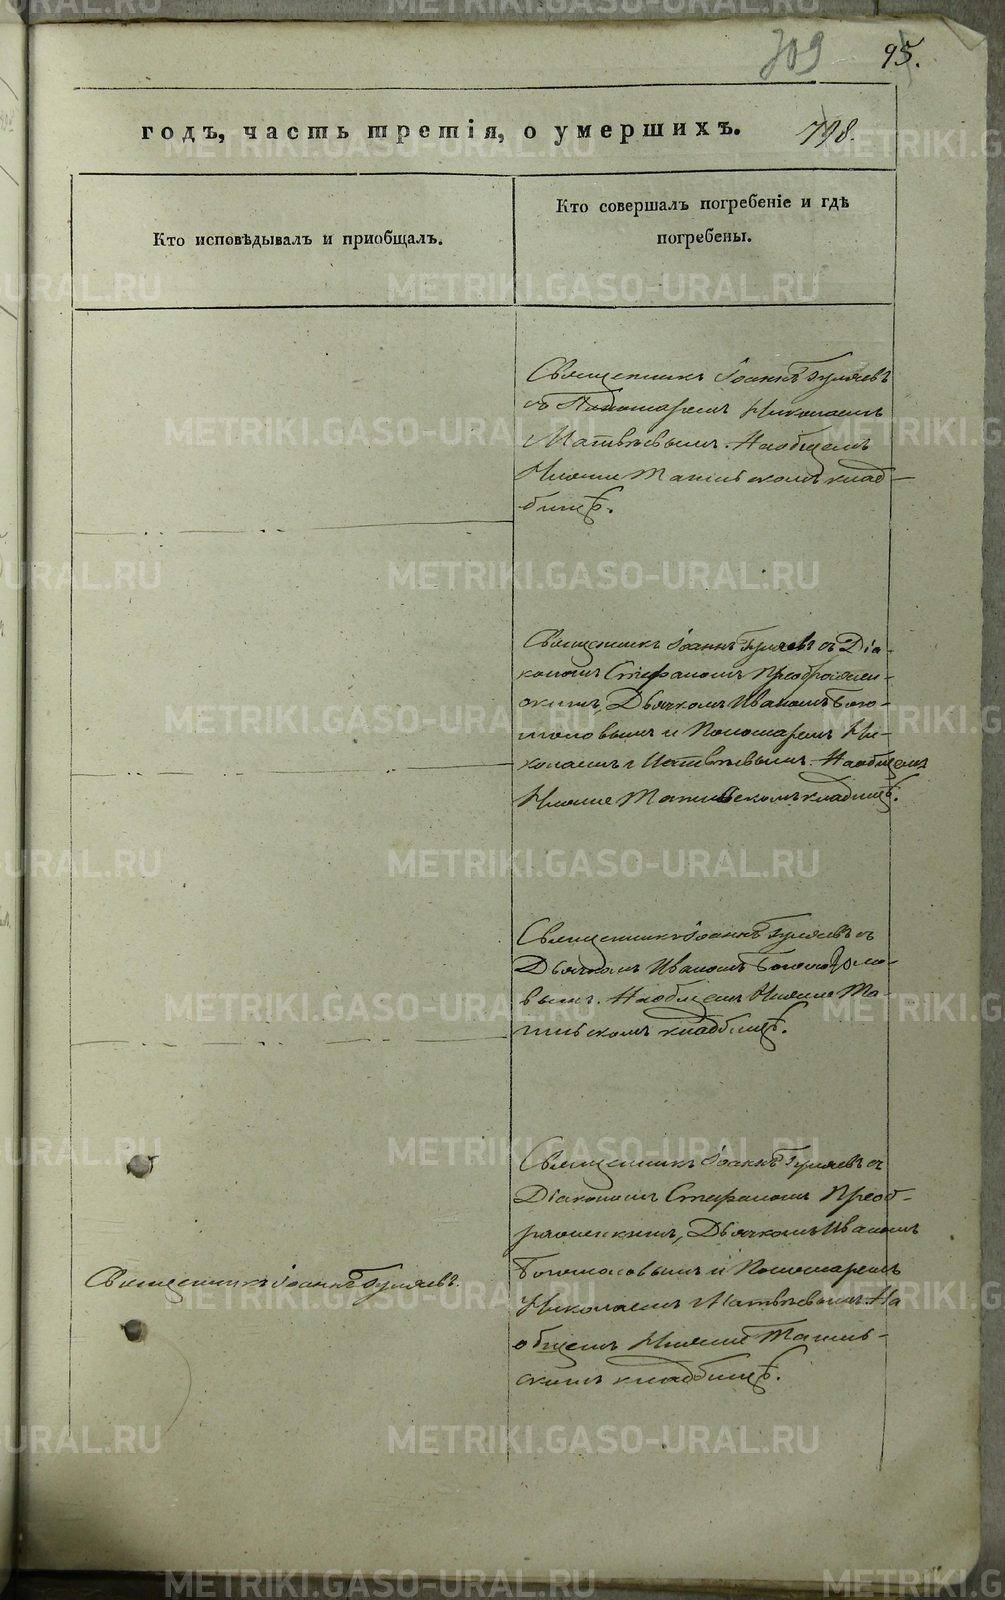 709
95.
годъ, часть третія, о умершихъ.
798.
Кто исповѣдывалъ и приобщалъ.
Кто совершалъ погребеніе и гдѣ
погребены.
Священникъ Іоаннъ Гуляевъ
съ Пономаремъ Николаемъ
Матвѣевымъ. На общемъ
Нижне Тагильскомъ клад-
бищѣ.
Священникъ Іоаннъ Гуляевъ съ Діа-
кономъ Стефаномъ Преображен-
скимъ, Дьячкомъ Иваномъ Бого-
моловымъ и Пономаремъ Ни-
колаемъ Матвѣевымъ. На общемъ
Нижне Тагильскомъ кладбищѣ.
Священникъ Іоаннъ Гуляевъ съ
Дьячкомъ Иваномъ
вымъ. На общемъ Нижне Та-
гильскомъ кладбищѣ.
Священникъ Іоаннъ Гуляевъ съ
Діакономъ Стефаномъ Преоб-
раженскимъ, Дьячкомъ Иваномъ
Богомоловымъ и Пономаремъ
Священникъ Іоаннъ Гуляевъ.
Николаемъ Матвѣевымъ. На
общемъ Нижне Тагиль-
скимъ кладбищѣ.
METRIKI.GASO-URAL.RU